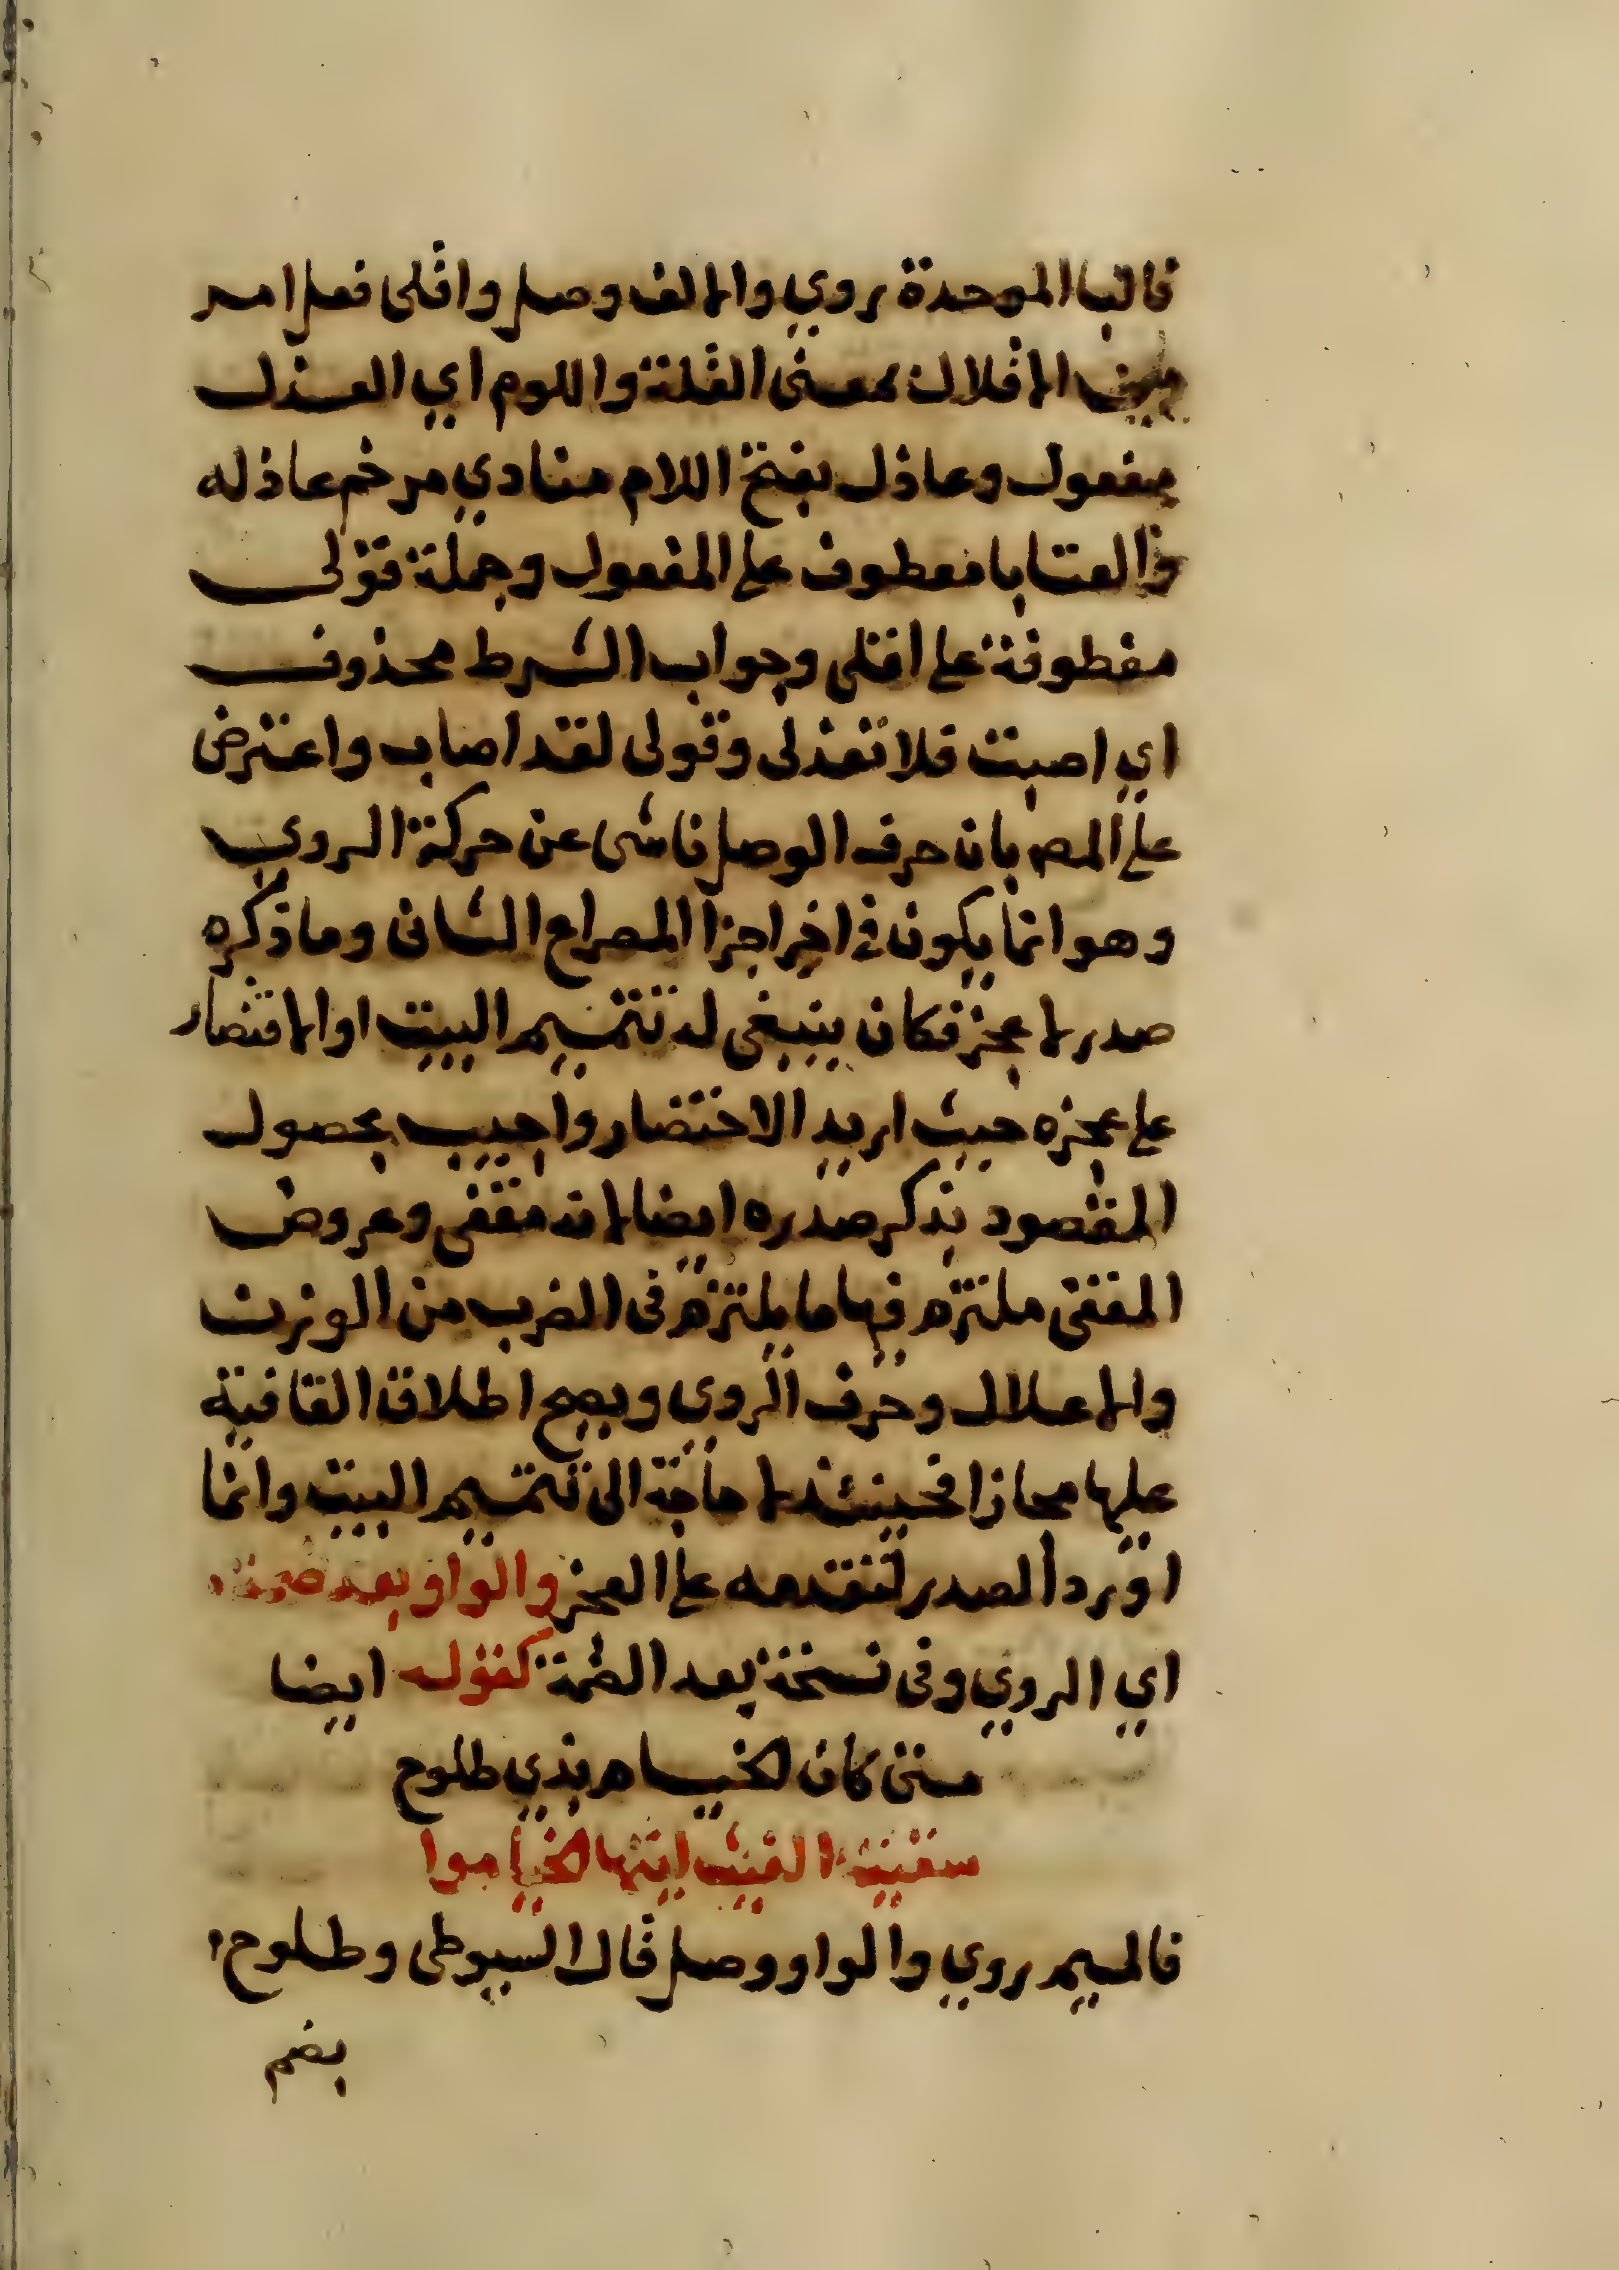 فالبا الموحدة روي والالف وصل واقلى فعل امر
من الاقلال بمعنى القلة واللوم اي العذل
مفعول وعاذل بفتح اللام منادي مرخم عاذله
والعتابا معطوف على المفعول وجملة قولى
معطوفة على اقلى وجواب الشرط محذوف
اي اصبت فلا تعذلى وقولى لقد اصاب واعترض
على المص بان حرف الوصل ناشى عن حركة الروي
وهو انما يكون في اخر اجزا المصراع الثانى وما ذكره
صدر لا عجز فكان ينبغى له تتميم البيت او الاقتصار
على عجزه حيث اريد الاختصار واجيب بحصول
المقصود بذكر صدره ايضا لانه مقفى وعروض
المقفى ملتزم فيها ما يلتزم فى الضرب من الوزن
والاعلال وحرف الروي ويصح اطلاق القافية
عليها مجازا فحينئذ لا حاجة الى تتميم البيت وانما
اورد الصدر لتقدمه على العجز والواو بعد ضمه
اي الروي وفى نسخة بعد الضمة كقوله ايضا
متى كان الخيام بذي طلوح
سقيت الغيث ايتها الخياموا
فالميم روي والواو وصل قال السيوطى وطلوح
بضم